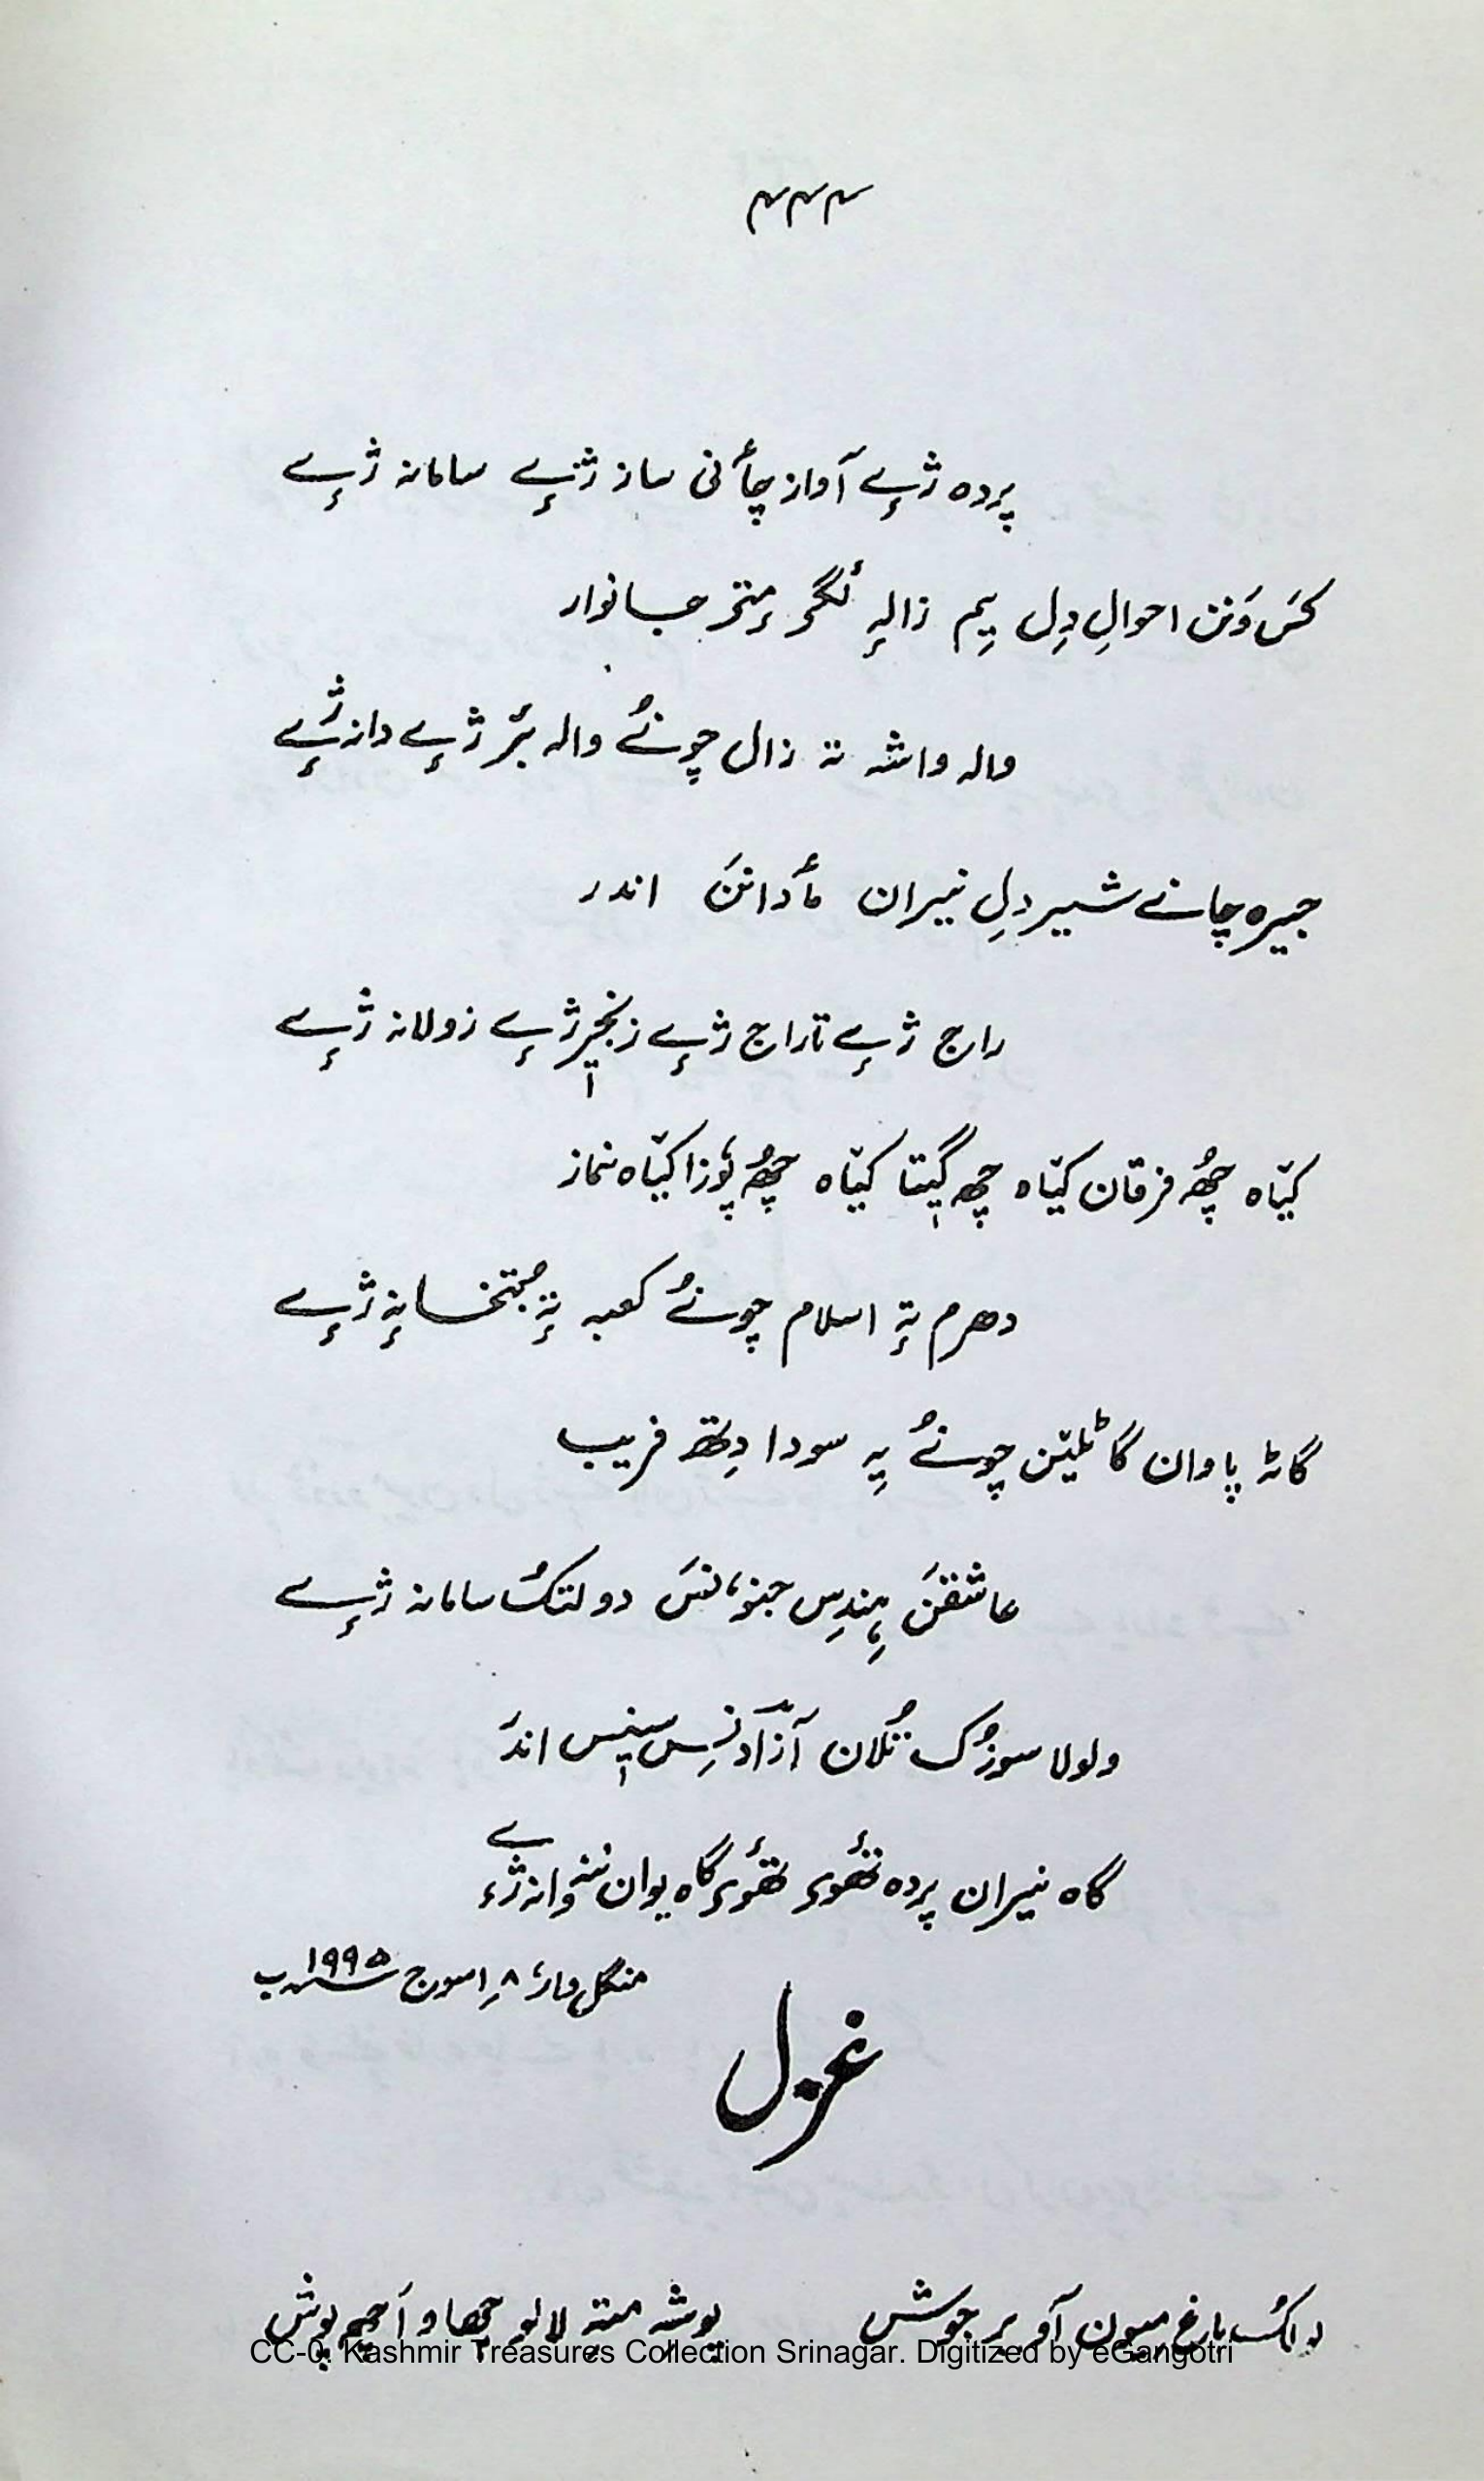 ۳۳۳
پردہ ژٕے آواز چأنی ساز ژٕنے سامانہ ژٕے
کسَ وَنن احوالِ دِل یِم زالہِ لگٔمٕتر جانوار
والہ واشہ تہ زال چونےُ والہ بٔر ژٕے دانہ ژٕے
جیرہ چانے شیر دلِ نیران مأدانن اندر
راج ژٕے تاراج ژٕے زنجیٖر ژٕے زولانہ ژٕے
کیّاہ چھُ فرقان کیّاہ چھ گیٖتا کیّاہ چھُ پوٗزا کیّاہ نماز
دھرم تہٕ اسلام چونےُ کعبہ تہٕ بُتخانہٕ ژٕے
گاٹہ پاوان گاٹلیّن چونےُ یِہ سودا دِتھ فریب
عاشقنَ ہٕندِس جنوٗنس دولتکُ سامانہ ژٕے
ولولا سوزُک تُلان آزادنِس سیٖنس اندرَ
گاہ نیران پردہ تھٔوی تھٔوی گاہ یوان ننوانہ ژٕے
منگل وار ۸؍ اسوج ۱۹۹۵ ب
غزل
بولکُ باغ میون آو بر جوش پوشہ متہِ لالو چھاو أچھ پوش
CC-0. Kashmir Treasures Collection Srinagar. Digitized by eGangotri